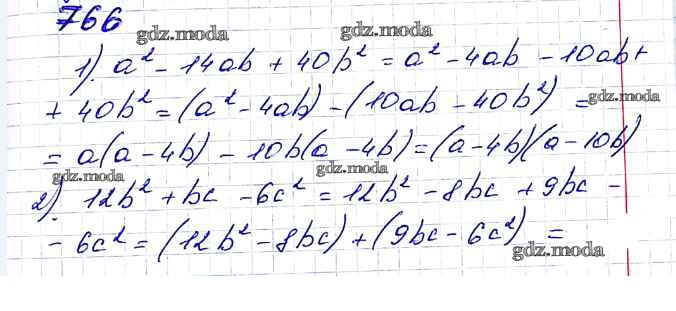 766
gdz.moda gdz.moda
1). a² - 14ab + 40b² = a² - 4ab - 10ab +
+ 40b² = (a² - 4ab) - (10ab - 40b²) =
gdz.moda
= a(a - 4b) - 10b(a - 4b) = (a - 4b)(a - 10b)
gdz.moda gdz.moda
2). 12b² + bc - 6c² = 12b² - 8bc + 9bc -
- 6c² = (12b² - 8bc) + (9bc - 6c²) =
gdz.moda